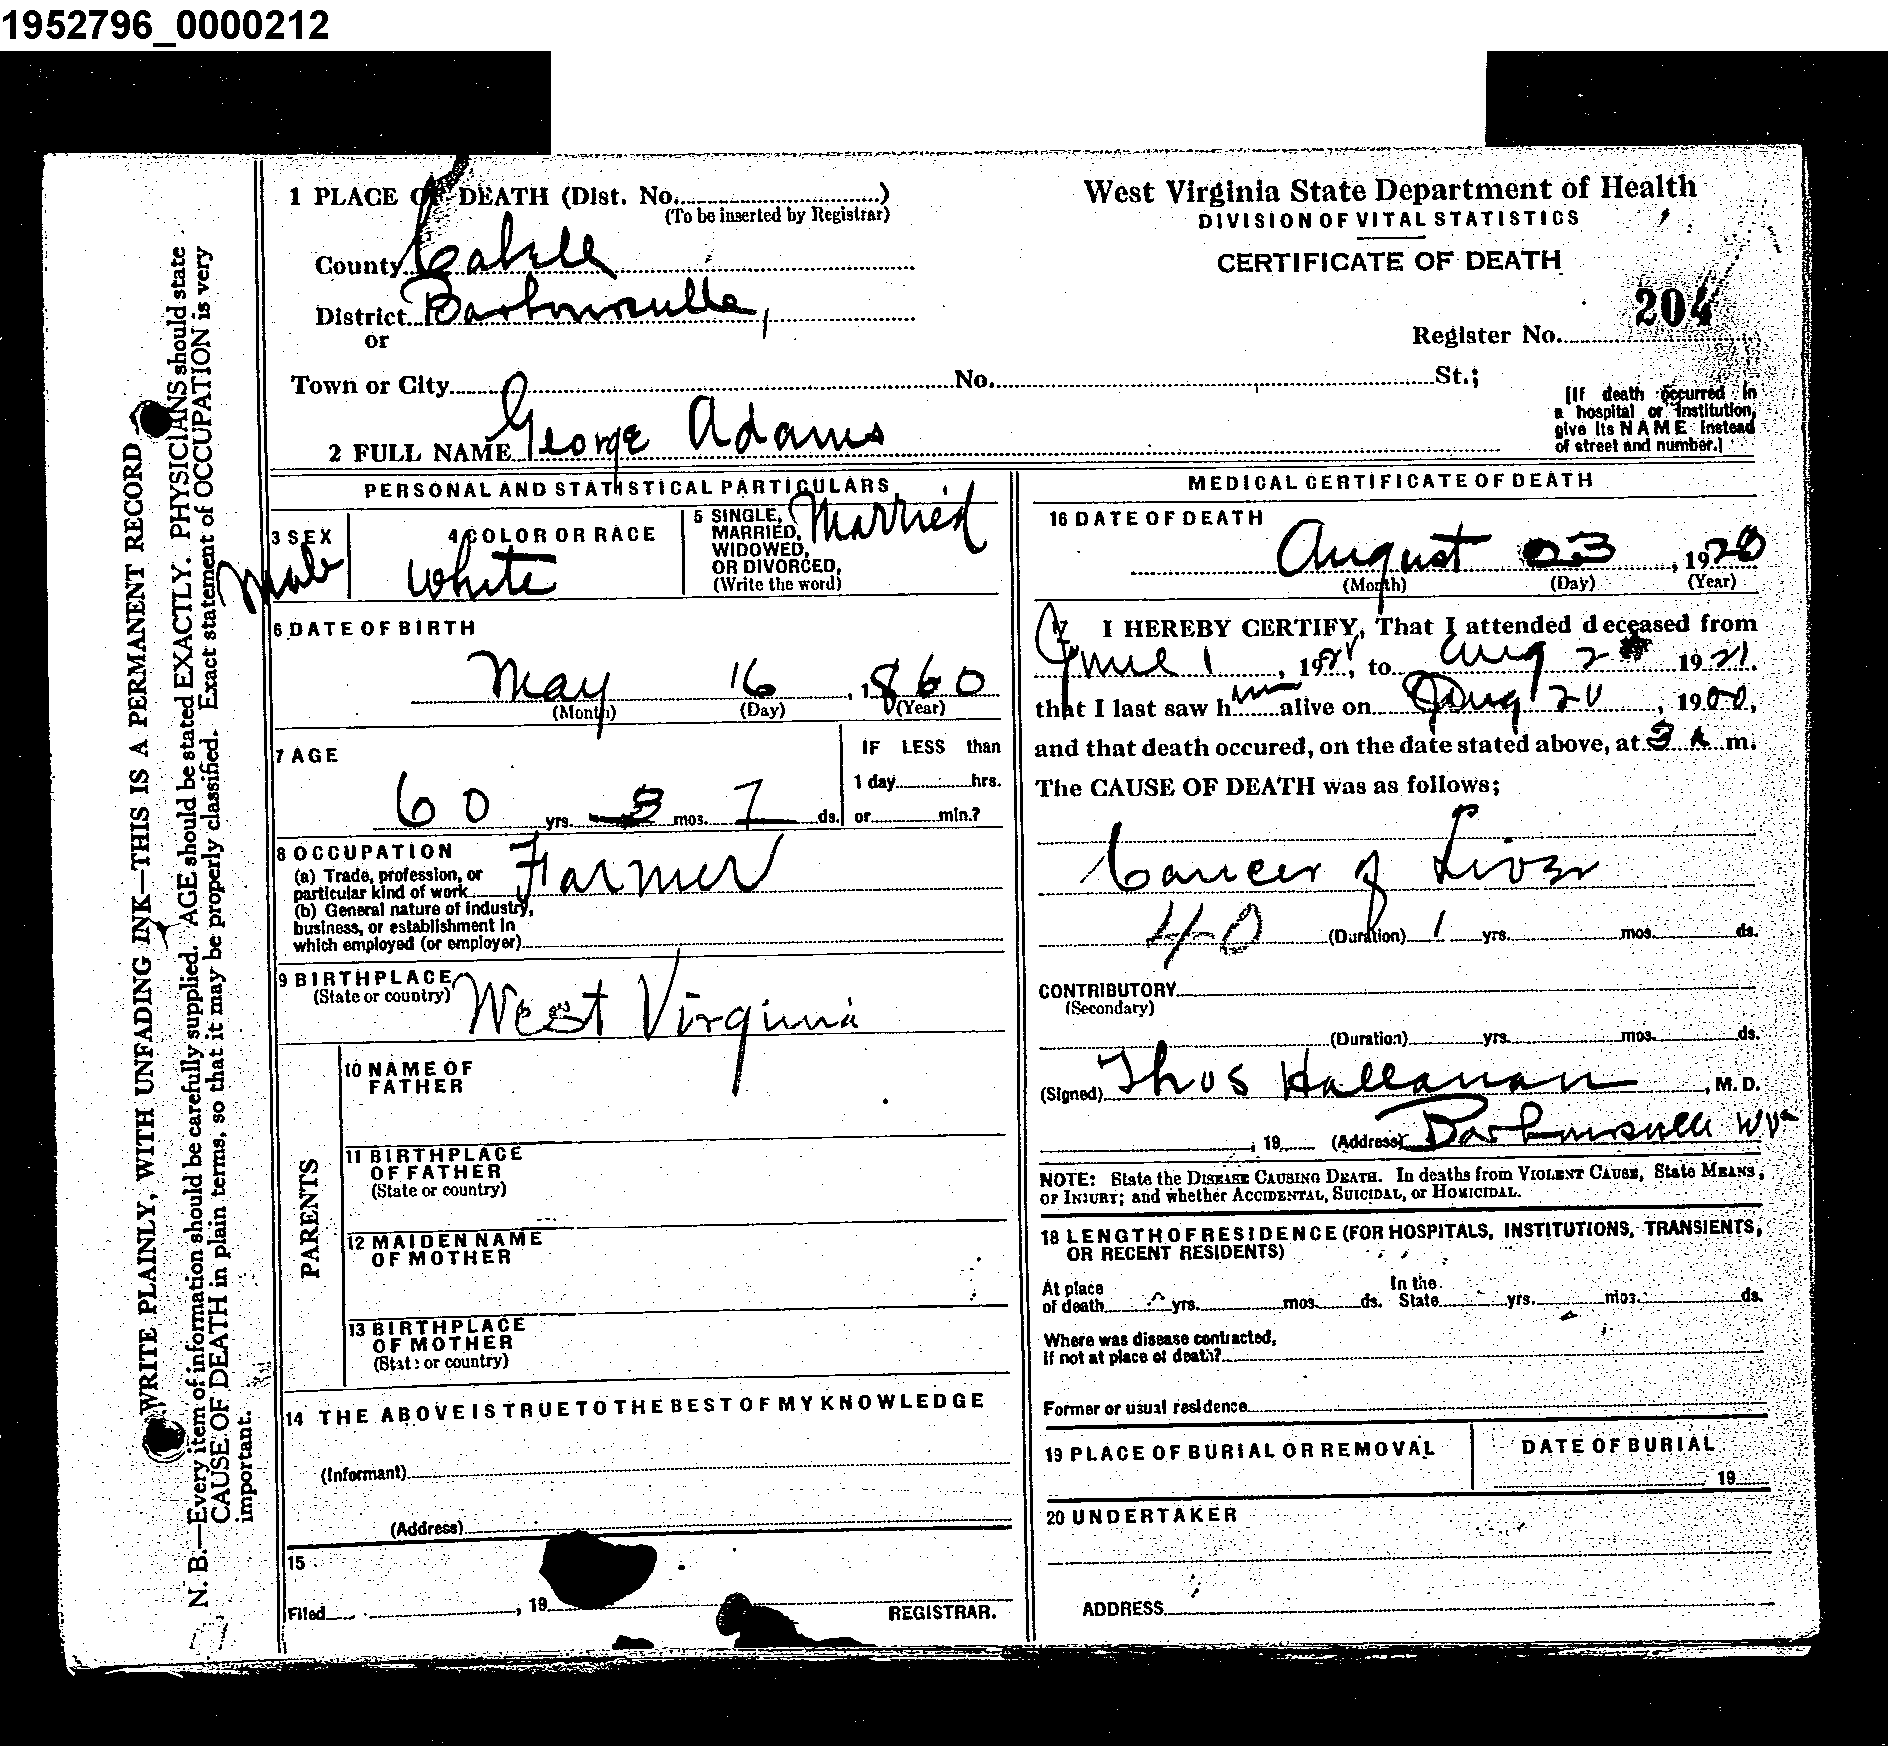 1952796_0000212
1 PLACE OF DEATH (Dist. No.)
(To be inserted by Registrar)
County Cabell
District Barboursville,
or
Town or City No. St.;
2 FULL NAME George Adams
West Virginia State Department of Health
DIVISION OF VITAL STATISTICS
CERTIFICATE OF DEATH
204
Register No.
[If death occurred in
a hospital or institution,
give its NAME instead
of street and number.]
WRITE PLAINLY, WITH UNFADING INK—THIS IS A PERMANENT RECORD
N. B.—Every item of information should be carefully supplied. AGE should be stated EXACTLY. PHYSICIANS should state
CAUSE OF DEATH in plain terms, so that it may be properly classified. Exact statement of OCCUPATION is very
important.
PERSONAL AND STATISTICAL PARTICULARS
3 SEX
Male
4 COLOR OR RACE
White
5 SINGLE,
MARRIED,
WIDOWED,
OR DIVORCED,
(Write the word)
Married
6 DATE OF BIRTH
May 16, 1860
(Month) (Day) (Year)
7 AGE
60 yrs. 3 mos. 7 ds.
IF LESS than
1 day hrs.
or min.?
8 OCCUPATION
(a) Trade, profession, or
particular kind of work Farmer
(b) General nature of industry,
business, or establishment in
which employed (or employer)
9 BIRTHPLACE
(State or country) West Virginia
PARENTS
10 NAME OF
FATHER
11 BIRTHPLACE
OF FATHER
(State or country)
12 MAIDEN NAME
OF MOTHER
13 BIRTHPLACE
OF MOTHER
(State or country)
14 THE ABOVE IS TRUE TO THE BEST OF MY KNOWLEDGE
(Informant)
(Address)
15
Filed , 19
REGISTRAR.
MEDICAL CERTIFICATE OF DEATH
16 DATE OF DEATH
August 23, 1920
(Month) (Day) (Year)
17 I HEREBY CERTIFY, That I attended deceased from
June 1, 192 , to Aug 2 19
that I last saw him alive on Aug 20, 19 ,
and that death occured, on the date stated above, at 3 A m.
The CAUSE OF DEATH was as follows;
Cancer of Liver
40 (Duration) 1 yrs. mos. ds.
CONTRIBUTORY
(Secondary)
(Duration) yrs. mos. ds.
(Signed) Thos Hallanan, M. D.
, 19 (Address) Barboursville W Va
NOTE: State the DISEASE CAUSING DEATH. In deaths from VIOLENT CAUSE, State MEANS,
OF INJURY; and whether ACCIDENTAL, SUICIDAL, or HOMICIDAL.
18 LENGTH OF RESIDENCE (FOR HOSPITALS, INSTITUTIONS, TRANSIENTS,
OR RECENT RESIDENTS)
At place
of death yrs. mos. ds.
In the
State yrs. mos. ds.
Where was disease contracted,
if not at place of death?
Former or usual residence
19 PLACE OF BURIAL OR REMOVAL
DATE OF BURIAL
19
20 UNDERTAKER
ADDRESS